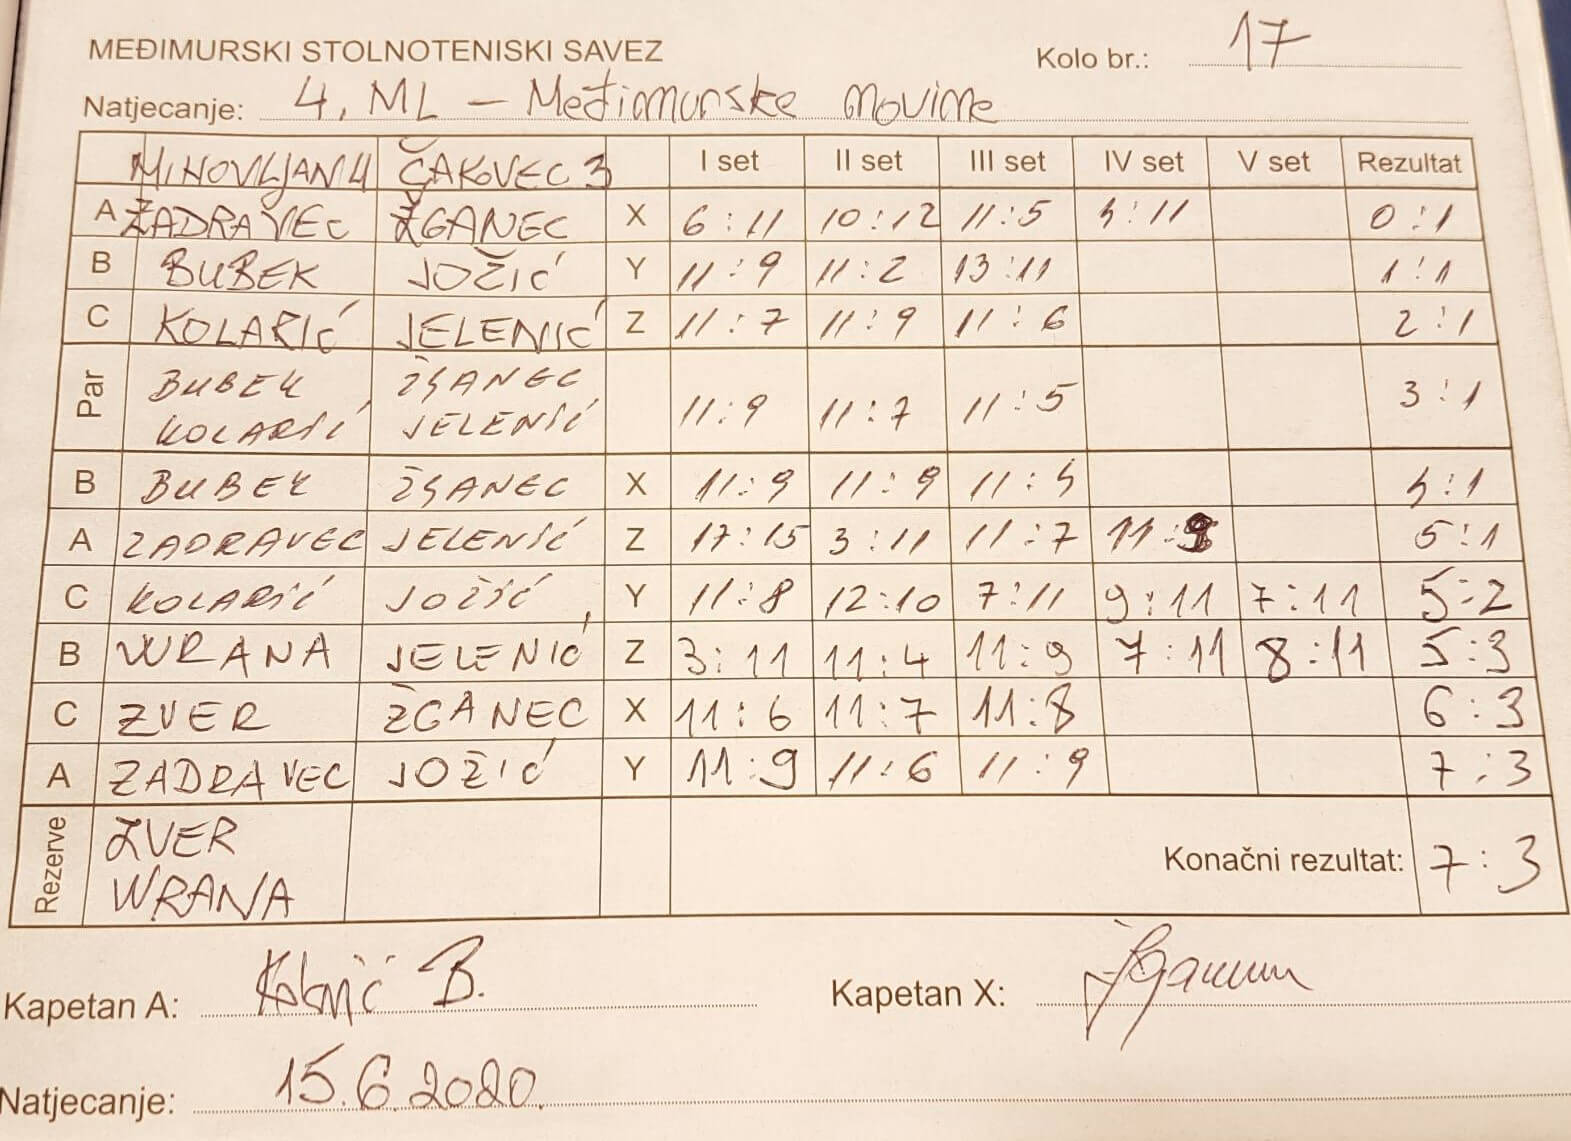 MEĐIMURSKI STOLNOTENISKI SAVEZ
Kolo br.: 17
Natjecanje: 4. ML – Međimurske novine
MIHOVLJAN 4 ČAKOVEC 3 I set II set III set IV set V set Rezultat
A ŽADRAVEC ŽGANEC X 6:11 10:12 11:5 4:11 0:1
B BUBEK JOŽIĆ Y 11:9 11:2 13:11 1:1
C KOLARIĆ JELENIĆ Z 11:7 11:9 11:6 2:1
Par BUBEK ŽGANEC
KOLARIĆ JELENIĆ 11:9 11:7 11:5 3:1
B BUBEK ŽGANEC X 11:9 11:9 11:4 4:1
A ZADRAVEC JELENIĆ Z 17:15 3:11 11:7 11:9 5:1
C KOLARIĆ JOŽIĆ Y 11:8 12:10 7:11 9:11 7:11 5:2
B WRANA JELENIĆ Z 3:11 11:4 11:9 7:11 8:11 5:3
C ZVER ŽGANEC X 11:6 11:7 11:8 6:3
A ZADRAVEC JOŽIĆ Y 11:9 11:6 11:9 7:3
Rezerve ZVER
WRANA
Konačni rezultat: 7:3
Kapetan A: Kolarić B.
Kapetan X:
Natjecanje: 15.6.2020.